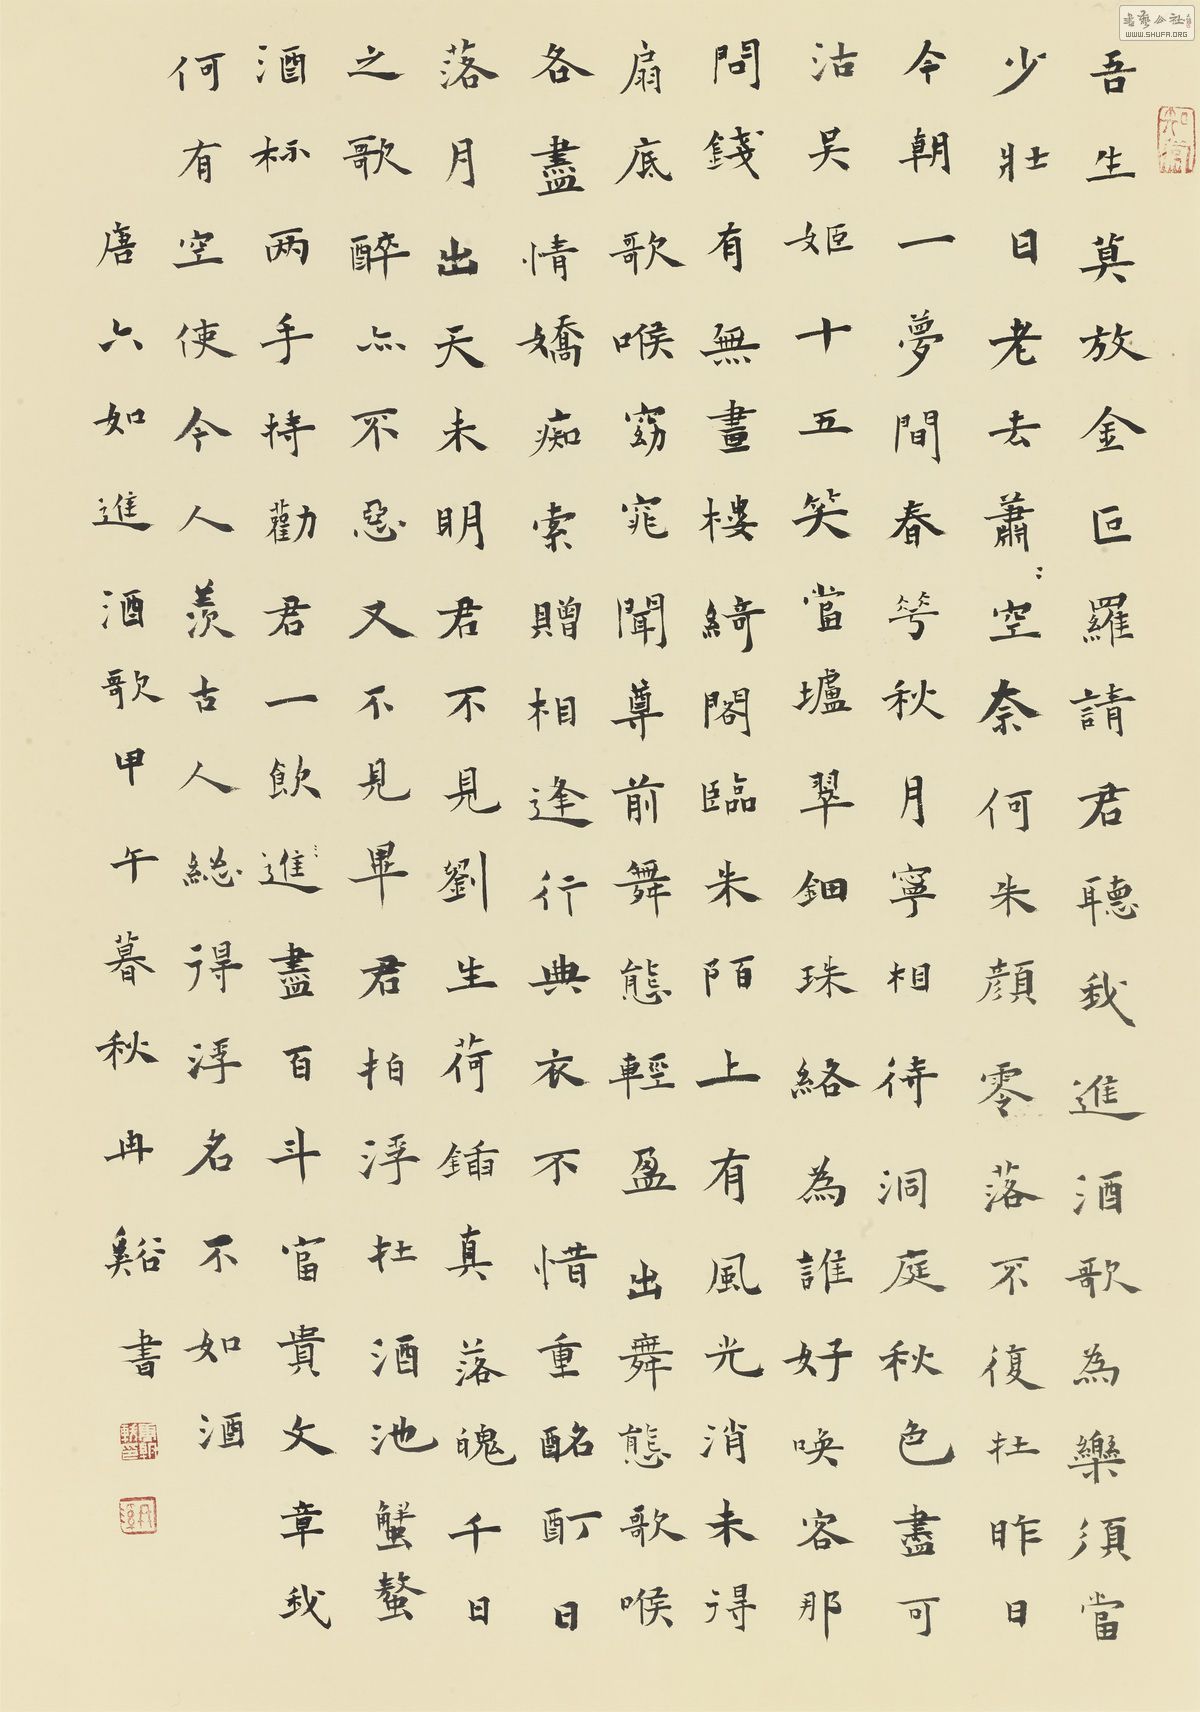 吾生莫放金叵羅請君聽我進酒歌為樂須當
少壯日老去蕭:空奈何朱顏零落不復在昨日
今朝一夢間春花秋月寧相待洞庭秋色盡可
沽吳姬十五笑當壚翠鈿珠絡為誰好喚客那
問錢有無畫樓綺閣臨朱陌上有風光消未得
扇底歌喉窈窕聞尊前舞態輕盈出舞態歌喉
各盡情嬌痴索贈相逢行典衣不惜重酩酊日
落月出天未明君不見劉生荷鍤真落魄千日
之歌醉亦不惡又不見畢君拍浮在酒池蟹螯
酒杯两手持勸君一飲進:盡百斗富貴文章我
何有空使今人羨古人總得浮名不如酒
唐六如進酒歌甲午暮秋冉谿書
書藝公社
WWW.SHUFA.ORG